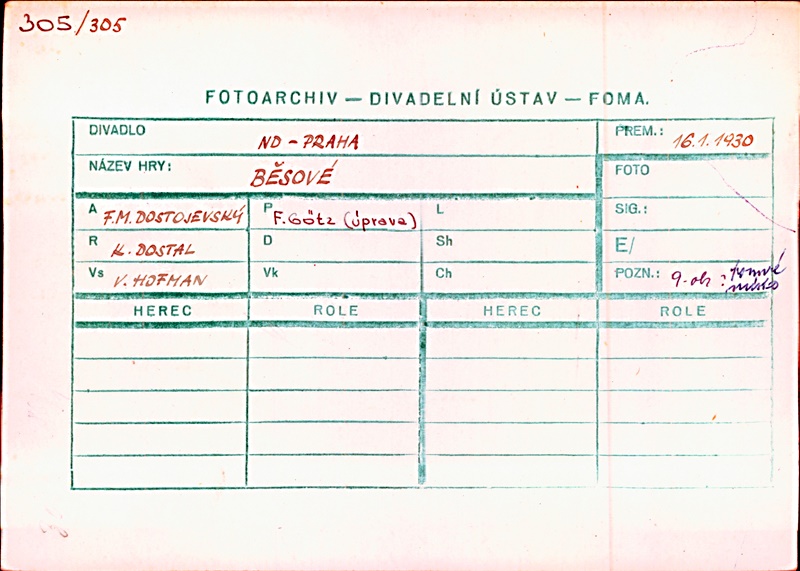 305/305
FOTOARCHIV — DIVADELNÍ ÚSTAV — FOMA.
DIVADLO ND - PRAHA PREM.: 16.1.1930
NÁZEV HRY: BĚSOVÉ FOTO
A F.M. DOSTOJEVSKÝ P F. Götz (úprava) L SIG.:
R K. DOSTAL D Sh E/
Vs V. HOFMAN Vk Ch POZN.: 9. ob:
HEREC ROLE HEREC ROLE